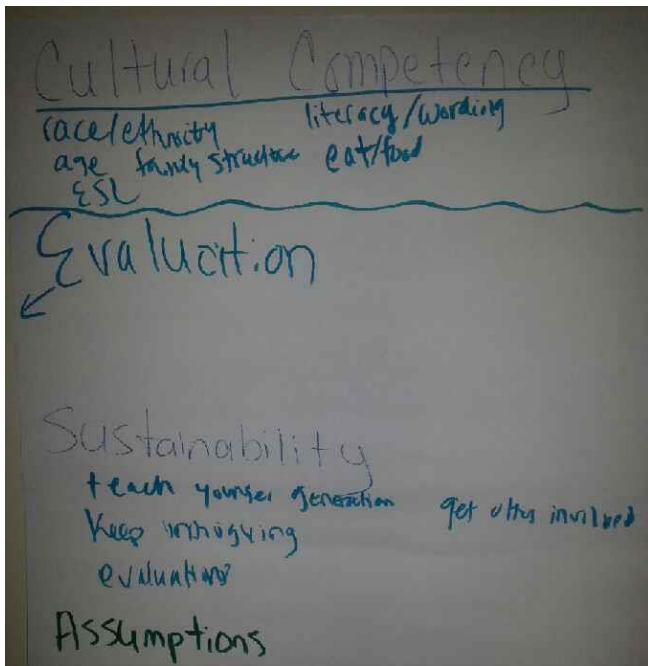 Cultural Competency
race/ethnicity literacy/wording
age family structure eat/food
ESL
Evaluation
Sustainability
teach younger generation get others involved
Keep intriguing
evaluations
Assumptions